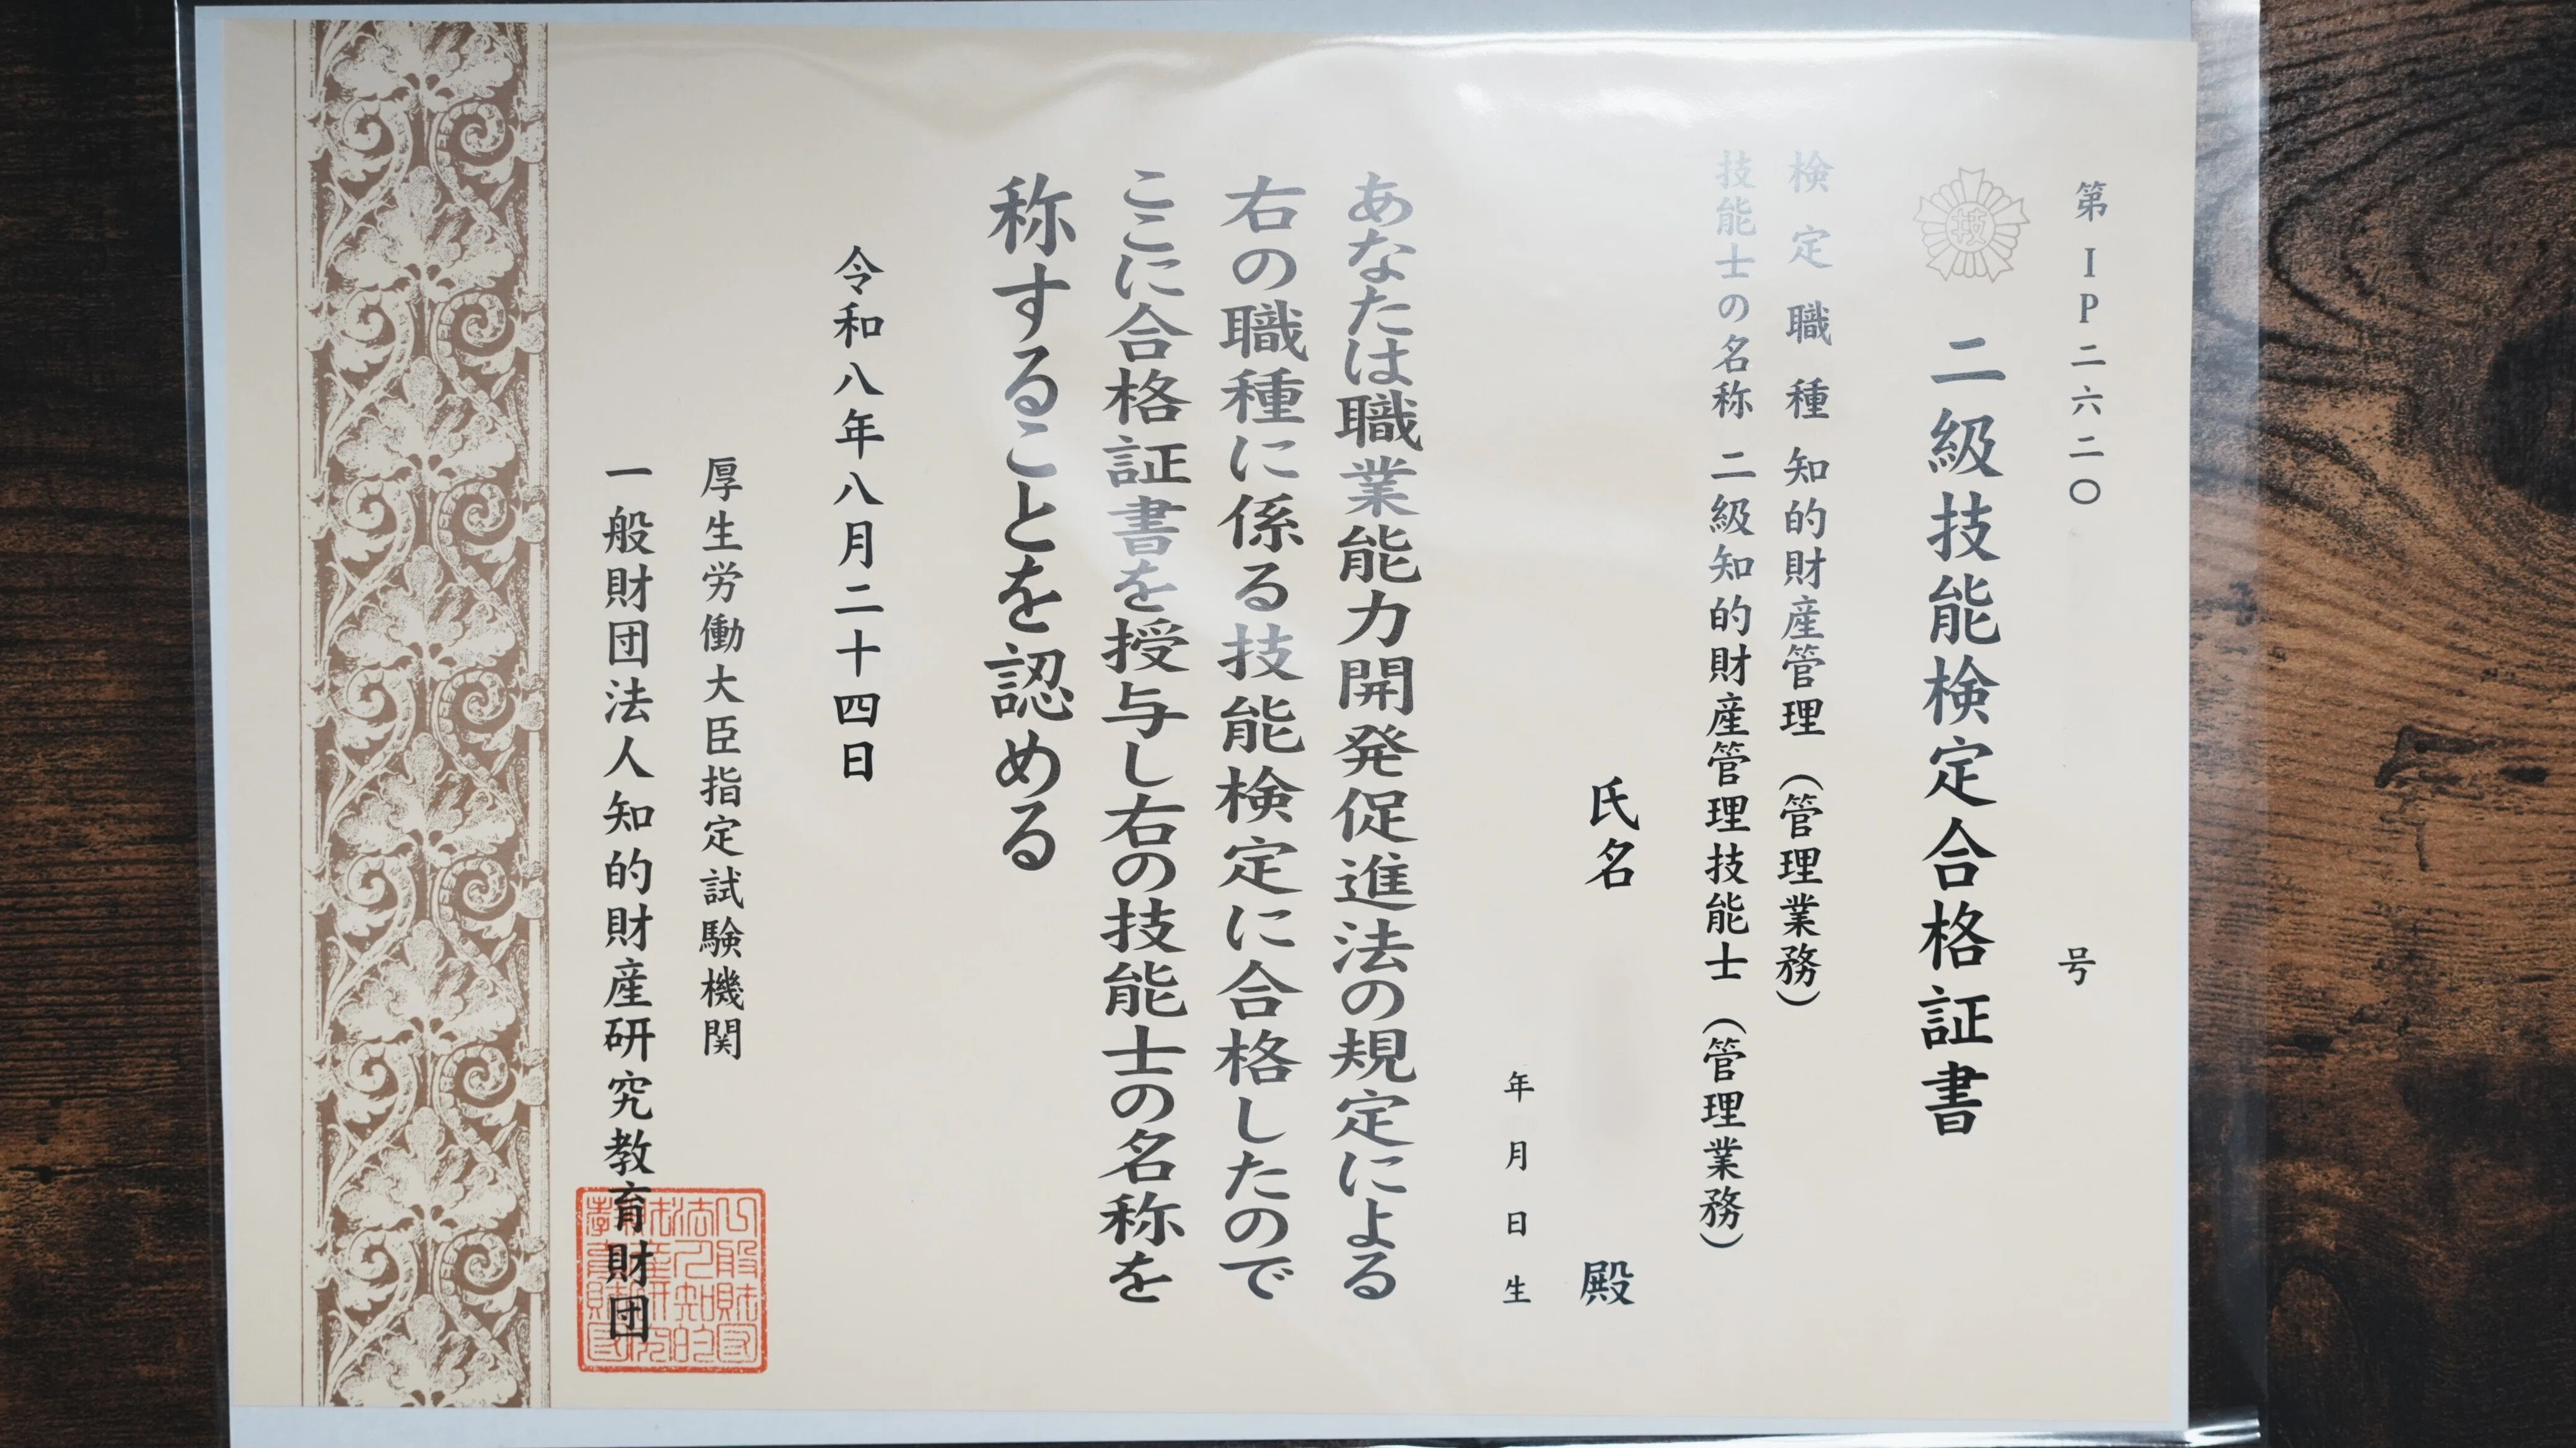 第IP二六二〇 号
技
二級技能検定合格証書
検定職種 知的財産管理（管理業務）
技能士の名称 二級知的財産管理技能士（管理業務）
氏名 殿
年月日生
あなたは職業能力開発促進法の規定による
右の職種に係る技能検定に合格したので
ここに合格証書を授与し右の技能士の名称を
称することを認める
令和八年八月二十四日
厚生労働大臣指定試験機関
一般財団法人知的財産研究教育財団